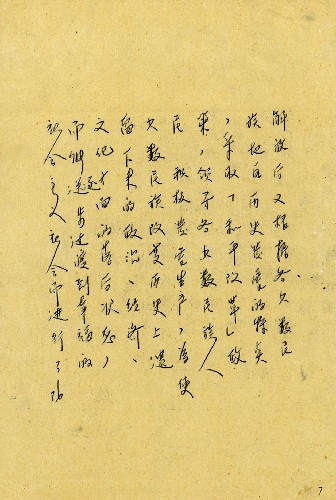 解放后又根据各少数民
族地区历史发展的特点
，采取「和平改革」政
策，领导各少数民族人
民 积极发展生产，为使
少数民族改变历史上遗
留下来的政治、经济、
文化方面的落后状态，
而能逐步过渡到幸福的
社会主义社会而进行了
7